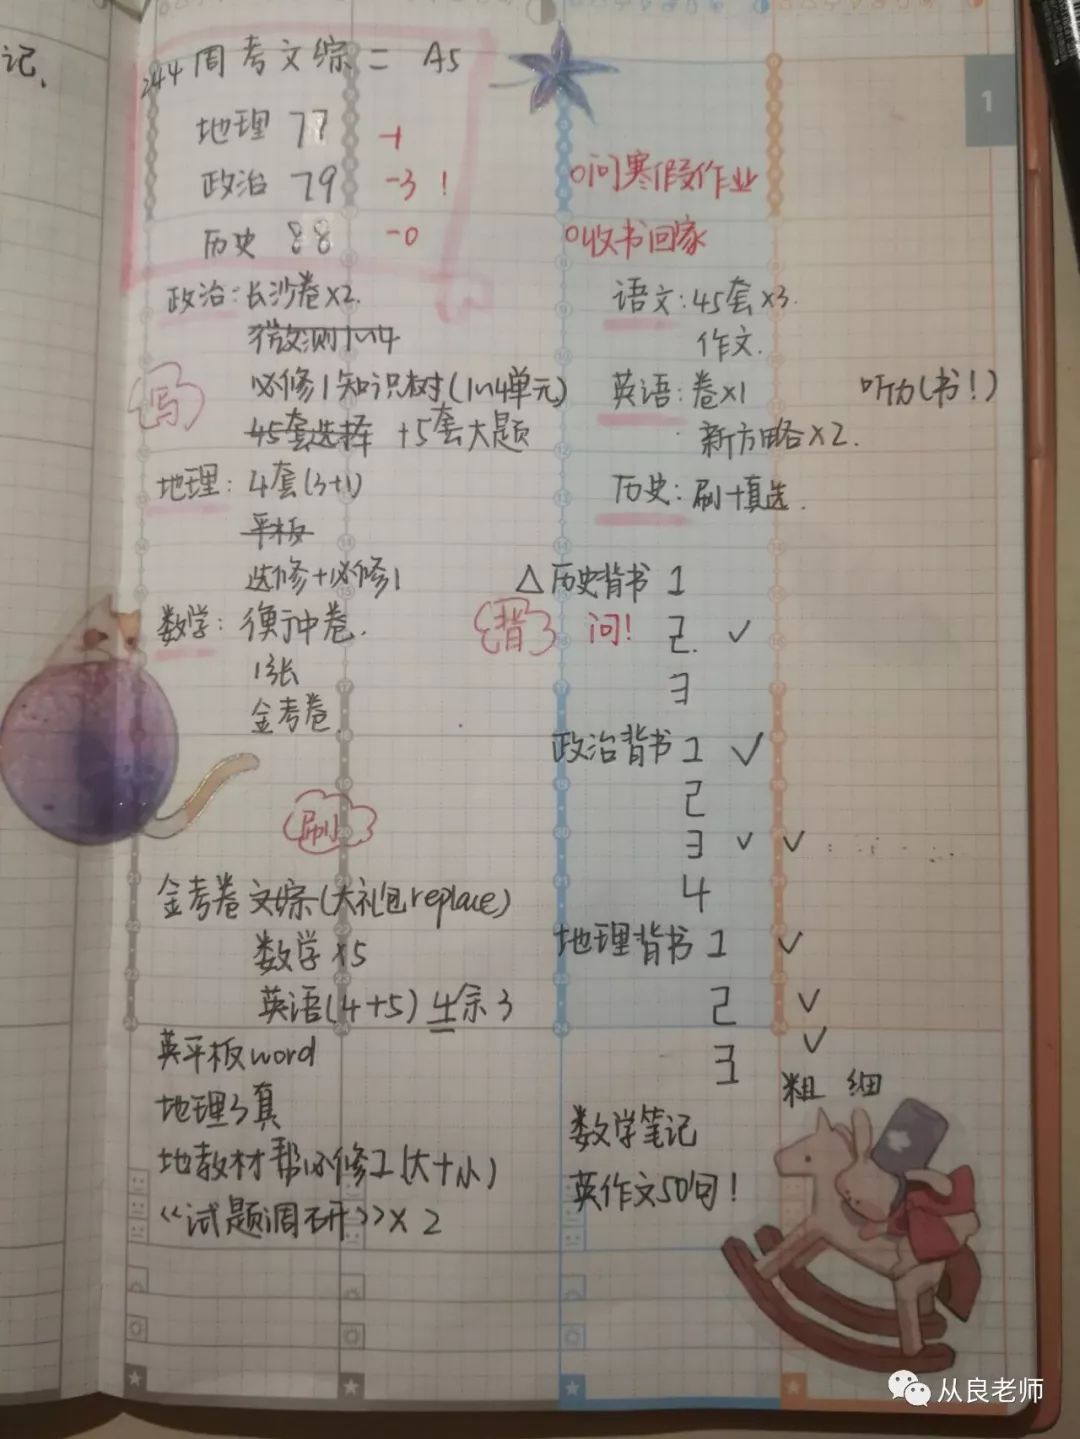 记、
244 周考文综二 A5
地理 77 -1
政治 79 -3！
历史 88 -0
1
O问寒假作业
O收书回家
政治：长沙卷×2.
微测1~4
写
必修1知识树(1~4单元)
45套选择 +5套大题
地理：4套(3+1)
平板
选修+必修1
数学：衡中卷.
1张
金考卷
语文：45套×3.
作文.
英语：卷×1 听力(书！)
新方略×2.
历史：刷+真选.
△历史背书 1
背 问！ 2. ✓
3
政治背书 1 ✓
2
3 ✓ ✓
4
地理背书 1 ✓
2 ✓
3 ✓
粗 细
刷
金考卷 文综(大礼包replace)
数学×5
英语(4+5) 4余3
英平板word
地理3真
地教材帮必修1(大+小)
《试题调研》×2
数学笔记
英作文50句！
从良老师